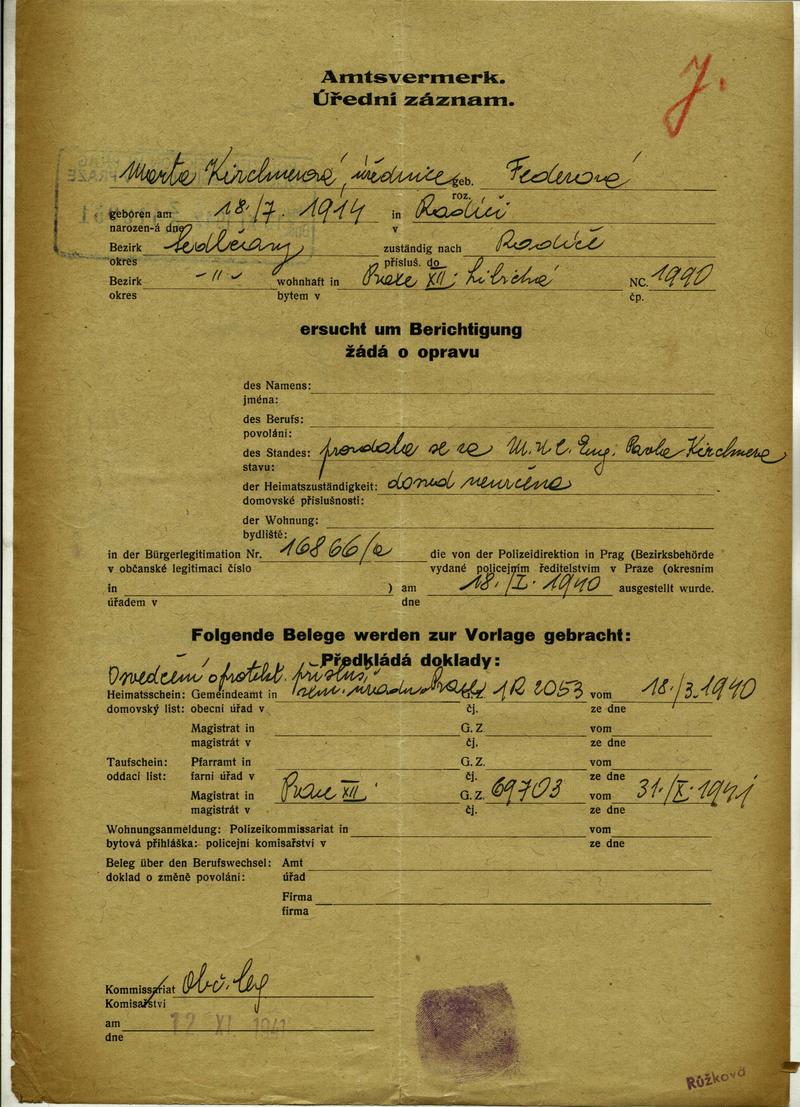 Amtsvermerk.
Úřední záznam.
J.
Marta Kirchnerová, úřednice geb. Federová
roz.
geboren am 18./7. 1914 in Radíči
narozen-á dne v
Bezirk Sedlčany zuständig nach Radíče
okres přísluš. do
Bezirk -"- wohnhaft in Praze XII; Libická NC. 1990
okres bytem v čp.
ersucht um Berichtigung
žádá o opravu
des Namens:
jména:
des Berufs:
povolání:
des Standes: provdala se za Ing. Kirchnera
stavu:
der Heimatszuständigkeit: dosud neurčena
domovské příslušnosti:
der Wohnung:
bydliště:
in der Bürgerlegitimation Nr. 16866/a die von der Polizeidirektion in Prag (Bezirksbehörde
v občanské legitimaci číslo vydané policejním ředitelstvím v Praze (okresním
in ) am 18./I. 1940 ausgestellt wurde.
úřadem v dne
Folgende Belege werden zur Vorlage gebracht:
Předkládá doklady:
Osvědčení o protekt. přísluš.
Heimatsschein: Gemeindeamt in zem. úřadu Praze G. Z. 1R 2053 vom 18./3. 1940
domovský list: obecní úřad v čj. ze dne
Magistrat in G. Z. vom
magistrát v čj. ze dne
Taufschein: Pfarramt in G. Z. vom
oddací list: farní úřad v čj. ze dne
Magistrat in Praze XII. G. Z. 69703 vom 31./X. 1941
magistrát v čj. ze dne
Wohnungsanmeldung: Polizeikommissariat in vom
bytová přihláška: policejní komisařství v ze dne
Beleg über den Berufswechsel: Amt
doklad o změně povolání: úřad
Firma
firma
Kommissariat Obč. leg
Komisařství
am 12 XI. 1941
dne
Růžková